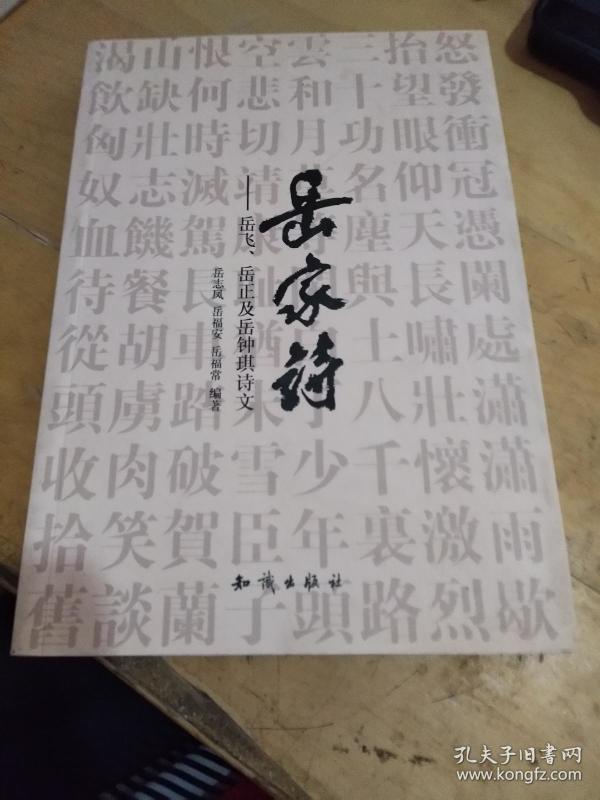 岳家诗
——岳飞、岳正及岳钟琪诗文
岳志凤 岳福安 岳福常 编著
知识出版社
怒發衝冠憑闌處瀟瀟雨歇
抬望眼仰天長嘯壯懷激烈
三十功名塵與土八千裏路
雲和月 了少年頭
空悲切靖康 猶未雪臣子
恨何時滅駕長車踏破賀蘭
山缺壯志饑餐胡虜肉笑談
渴飲匈奴血待從頭收拾舊
孔夫子旧书网
www.kongfz.com